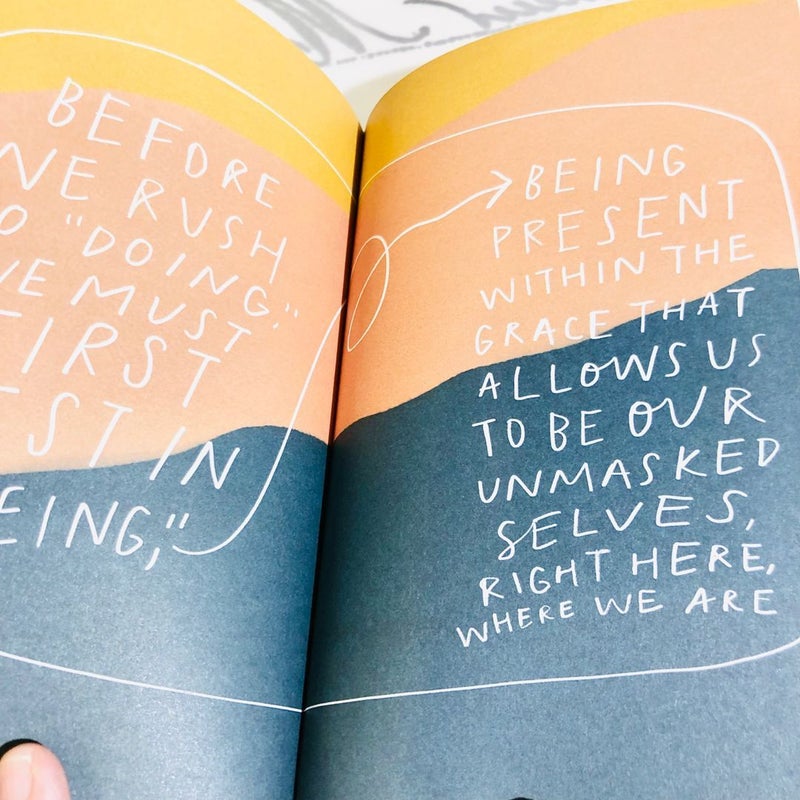 BEFORE
WE RUSH
O "DOING,"
WE MUST
FIRST
ST IN
EING,"
BEING
PRESENT
WITHIN THE
GRACE THAT
ALLOWS US
TO BE OUR
UNMASKED
SELVES,
RIGHT HERE,
WHERE WE ARE